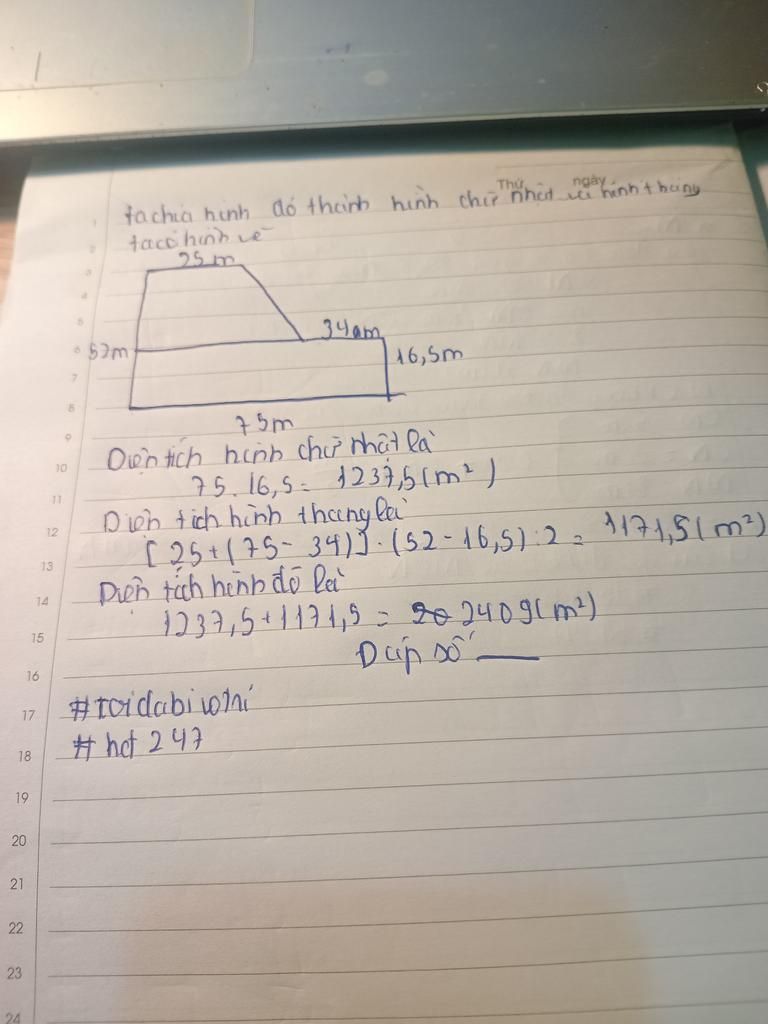 Thứ ngày
ta chia hình đó thành hình chữ nhật và hình thang
ta có hình vẽ
25 m
34m
52m
16,5m
75m
Diện tích hình chữ nhật là
75.16,5 = 1237,5 (m²)
Diện tích hình thang là
[25+(75-34)].(52-16,5):2 = 1171,5 (m²)
Diện tích hình đó là
1237,5+1171,5 = 2409(m²)
Đáp số
#toidabiuotni
# hct 247
1
2
3
4
5
6
7
8
9
10
11
12
13
14
15
16
17
18
19
20
21
22
23
24